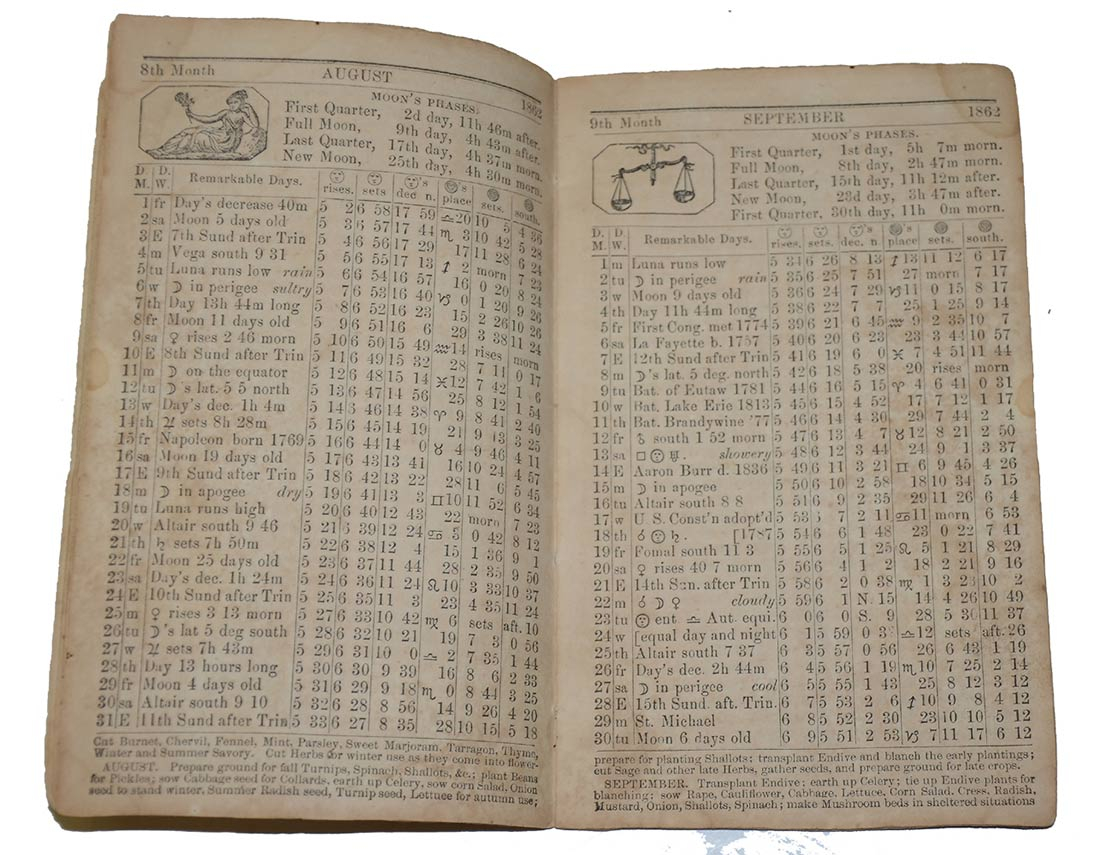 8th Month AUGUST 1862
MOON'S PHASES.
First Quarter, 2d day, 11h 46m after.
Full Moon, 9th day, 4h 43m after.
Last Quarter, 17th day, 4h 37m morn.
New Moon, 25th day, 4h 30m morn.
D. M. D. W. Remarkable Days. ☉ rises. ☉ sets ☉'s dec n. ☽'s place ☽ sets. ☽ south.
1 fr Day's decrease 40m 5 2 6 58 17 59 ♎20 10 5 4 36
2 sa Moon 5 days old 5 3 6 57 17 44 ♏ 3 10 42 5 28
3 E 7th Sund after Trin 5 4 6 56 17 29 17 11 28 6 24
4 m Vega south 9 31 5 5 6 55 17 13 ♐ 2 morn 7 23
5 tu Luna runs low rain 5 6 6 54 16 57 16 0 20 8 24
6 w ☽ in perigee sultry 5 7 6 53 16 40 ♑ 0 1 20 9 26
7 th Day 13h 44m long 5 8 6 52 16 23 15 2 26 10 26
8 fr Moon 11 days old 5 9 6 51 16 6 29 3 38 11 24
9 sa ♀ rises 2 46 morn 5 10 6 50 15 49 ♒14 rises morn
10 E 8th Sund after Trin 5 11 6 49 15 32 28 7 11 0 17
11 m ☽ on the equator 5 12 6 48 15 14 ♓12 7 42 1 6
12 tu ☽'s lat. 5 5 north 5 13 6 47 14 56 25 8 12 1 54
13 w Day's dec. 1h 4m 5 14 3 46 14 38 ♈ 9 8 41 2 40
14 th ♃ sets 8h 28m 5 15 6 45 14 19 21 9 13 3 25
15 fr Napoleon born 1769 5 16 6 44 14 0 ♉ 4 9 46 4 11
16 sa Moon 19 days old 5 17 6 43 13 41 16 10 24 4 57
17 E 9th Sund after Trin 5 18 6 42 13 22 28 11 6 5 45
18 m ☽ in apogee dry 5 19 6 41 13 3 ♊10 11 52 6 34
19 tu Luna runs high 5 20 6 40 12 43 22 morn 7 23
20 w Altair south 9 46 5 21 6 39 12 24 ♋ 5 0 42 8 12
21 th ♄ sets 7h 50m 5 22 6 38 12 4 15 1 36 9 1
22 fr Moon 25 days old 5 23 6 37 11 44 28 2 35 9 50
23 sa Day's dec. 1h 24m 5 24 6 36 11 24 ♌10 3 33 10 37
24 E 10th Sund after Trin 5 25 6 35 11 3 23 4 35 11 24
25 m ♀ rises 3 13 morn 5 27 6 33 10 42 ♍ 6 sets aft.10
26 tu ☽'s lat 5 deg south 5 28 6 32 10 21 19 7 3 0 56
27 w ♃ sets 7h 43m 5 29 6 31 10 0 ♎ 2 7 35 1 44
28 th Day 13 hours long 5 30 6 30 9 39 16 8 6 2 33
29 fr Moon 4 days old 5 31 6 29 9 18 ♏ 0 8 44 3 25
30 sa Altair south 9 10 5 32 6 28 8 56 14 9 26 4 20
31 E 11th Sund after Trin 5 33 6 27 8 35 28 10 15 5 18
Cut Burnet, Chervil, Fennel, Mint, Parsley, Sweet Marjoram, Tarragon, Thyme,
Winter and Summer Savory. Cut Herbs for winter use as they come into flower-
AUGUST. Prepare ground for fall Turnips, Spinach, Shallots, &c.; plant Beans
for Pickles; sow Cabbage seed for Collards, earth up Celery, sow corn Salad, Onion
seed to stand winter, Summer Radish seed, Turnip seed, Lettuce for autumn use;
9th Month SEPTEMBER 1862
MOON'S PHASES.
First Quarter, 1st day, 5h 7m morn.
Full Moon, 8th day, 2h 47m morn.
Last Quarter, 15th day, 11h 12m after.
New Moon, 23d day, 3h 47m after.
First Quarter, 30th day, 11h 0m morn.
D. M. D. W. Remarkable Days. ☉ rises. ☉ sets. ☉'s dec. n ☽'s place ☽ sets. ☽ south.
1 m Luna runs low 5 34 6 26 8 13 ♐13 11 12 6 17
2 tu ☽ in perigee rain 5 35 6 25 7 51 27 morn 7 17
3 w Moon 9 days old 5 36 6 24 7 29 ♑11 0 15 8 17
4 th Day 11h 44m long 5 38 6 22 7 7 25 1 25 9 14
5 fr First Cong. met 1774 5 39 6 21 6 45 ♒ 9 2 35 10 7
6 sa La Fayette b. 1757 5 40 6 20 6 23 23 3 44 10 57
7 E 12th Sund after Trin 5 41 6 19 6 0 ♓ 7 4 51 11 44
8 m ☽'s lat. 5 deg. north 5 42 6 18 5 38 20 rises morn
9 tu Bat. of Eutaw 1781 5 44 6 16 5 15 ♈ 4 6 41 0 31
10 w Bat. Lake Erie 1813 5 45 6 15 4 52 17 7 12 1 17
11 th Bat. Brandywine '77 5 46 6 14 4 30 29 7 44 2 4
12 fr ♁ south 1 52 morn 5 47 6 13 4 7 ♉12 8 21 2 50
13 sa □ ☉ ♅. showery 5 48 6 12 3 44 24 9 1 3 37
14 E Aaron Burr d. 1836 5 49 6 11 3 21 ♊ 6 9 45 4 26
15 m ☽ in apogee 5 50 6 10 2 58 18 10 34 5 15
16 tu Altair south 8 8 5 51 6 9 2 35 29 11 26 6 4
17 w U S. Const'n adopt'd 5 53 6 7 2 11 ♋11 morn 6 53
18 th ☌ ☉ ♄. [1787 5 54 6 6 1 48 23 0 22 7 41
19 fr Fomal south 11 3 5 55 6 5 1 25 ♌ 5 1 21 8 29
20 sa ♀ rises 40 7 morn 5 56 6 4 1 2 18 2 21 9 16
21 E 14th Sun. after Trin 5 58 6 2 0 38 ♍ 1 3 23 10 2
22 m ☌ ☽ ♀ cloudy 5 59 6 1 N. 15 14 4 26 10 49
23 tu ☉ ent ♎ Aut. equi. 6 0 6 0 S. 9 28 5 30 11 37
24 w [equal day and night 6 1 5 59 0 3 ♎12 sets aft.26
25 th Altair south 7 37 6 3 5 57 0 56 26 6 43 1 19
26 fr Day's dec. 2h 44m 6 4 5 56 1 19 ♏10 7 25 2 14
27 sa ☽ in perigee cool 6 5 5 55 1 43 25 8 12 3 12
28 E 15th Sund. aft. Trin. 6 7 5 53 2 6 ♐10 9 8 4 12
29 m St. Michael 6 8 5 52 2 30 23 10 10 5 12
30 tu Moon 6 days old 6 9 5 51 2 53 ♑ 7 11 17 6 12
prepare for planting Shallots; transplant Endive and blanch the early plantings;
cut Sage and other late Herbs, gather seeds, and prepare ground for late crops.
SEPTEMBER. Transplant Endive; earth up Celery; tie up Endive plants for
blanching; sow Rape, Cauliflower, Cabbage, Lettuce, Corn Salad, Cress, Radish,
Mustard, Onion, Shallots, Spinach; make Mushroom beds in sheltered situations